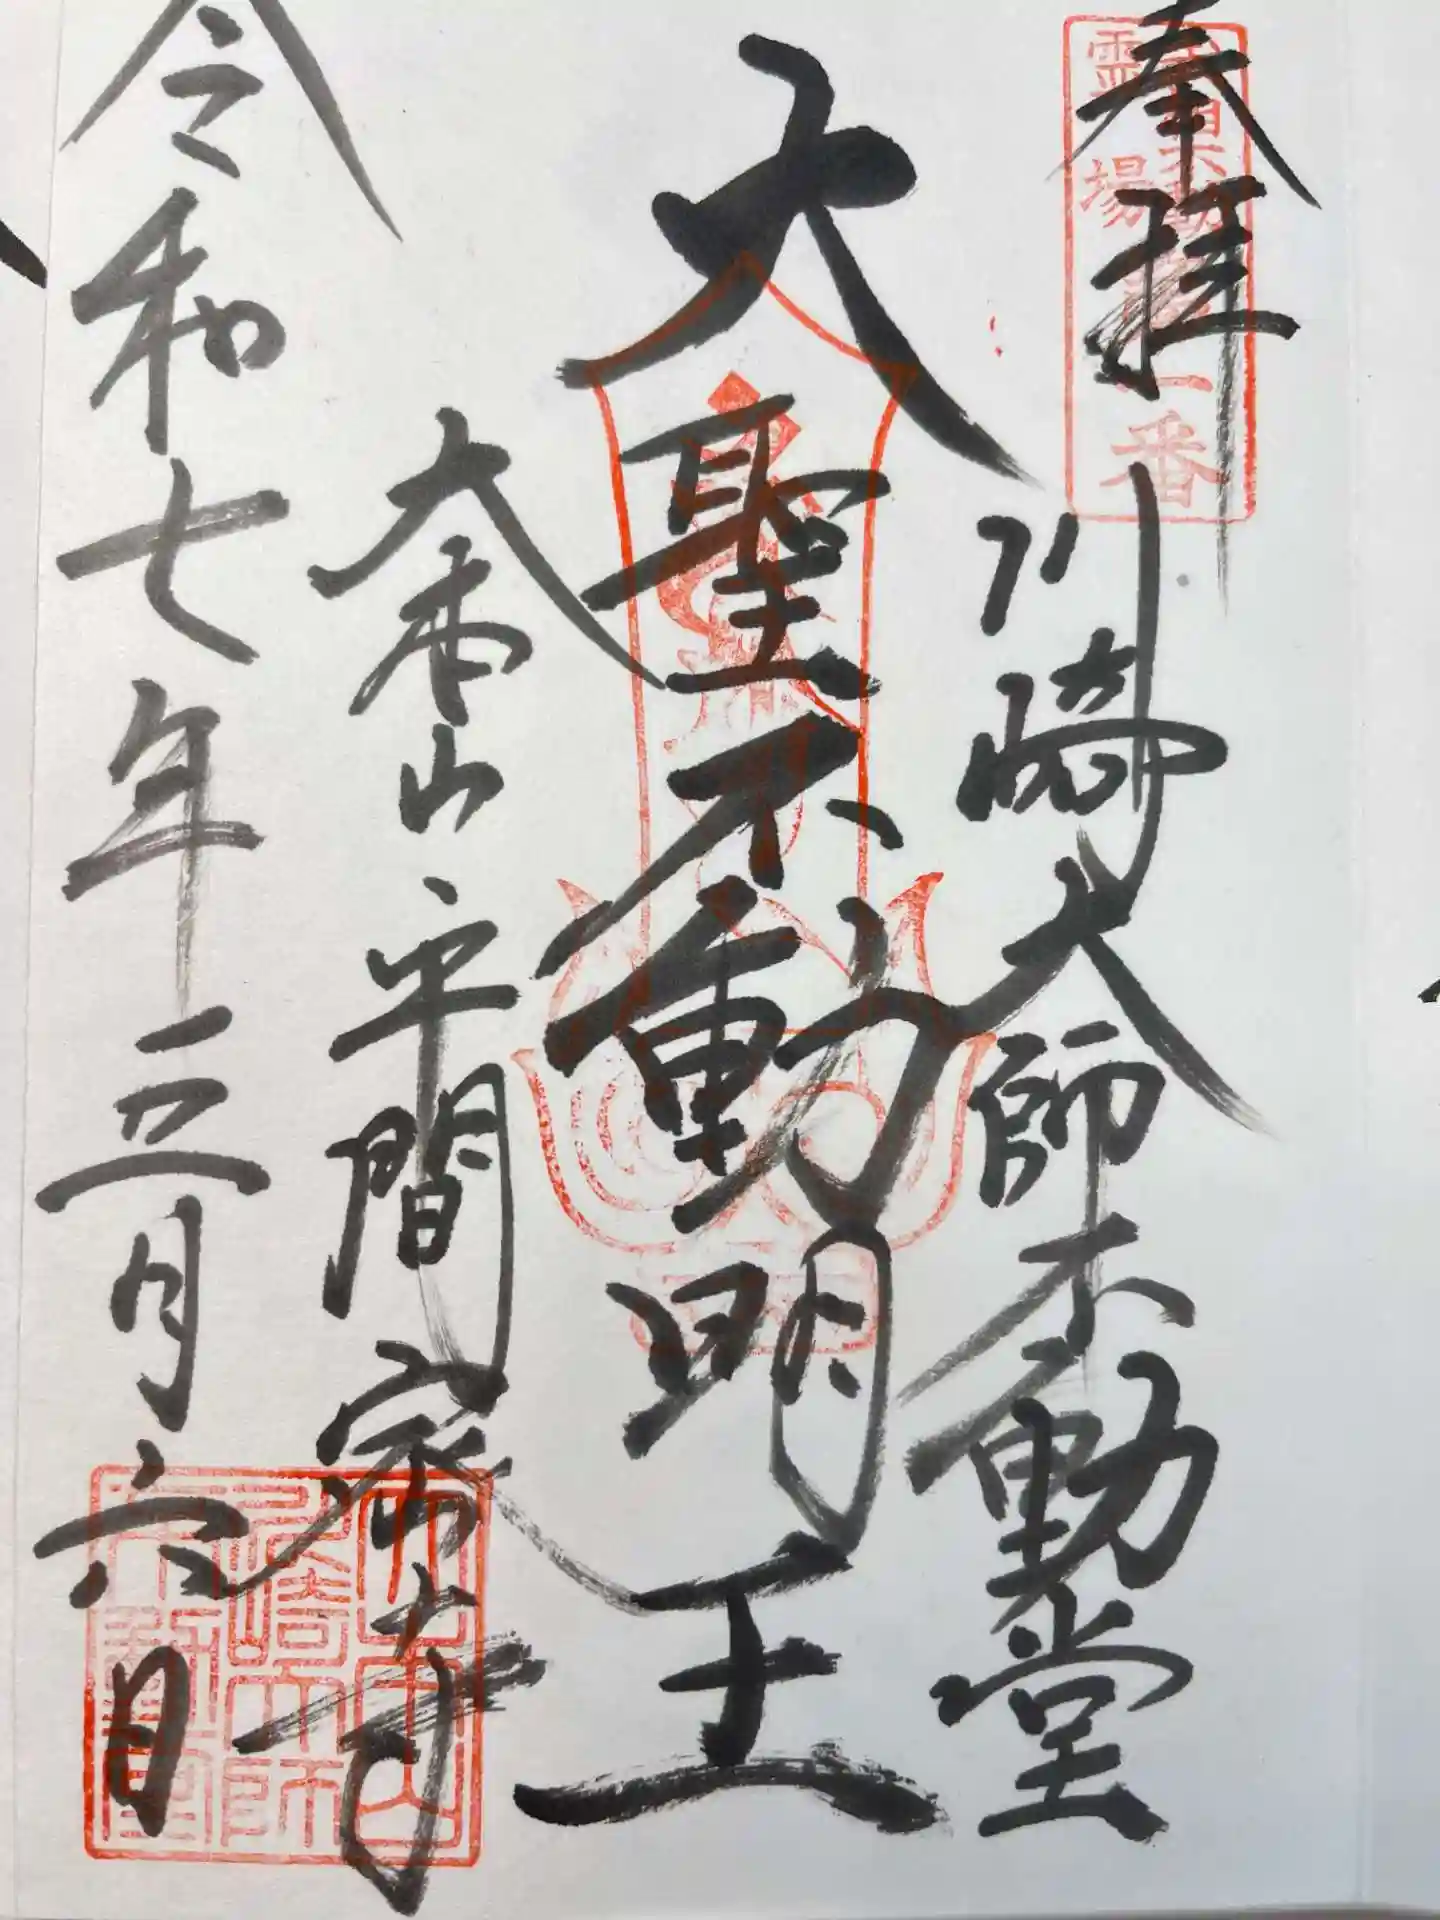 奉拝
川崎大師不動堂
大聖不動明王
大本山平間寺
令和七年三月六日
霊場
一番